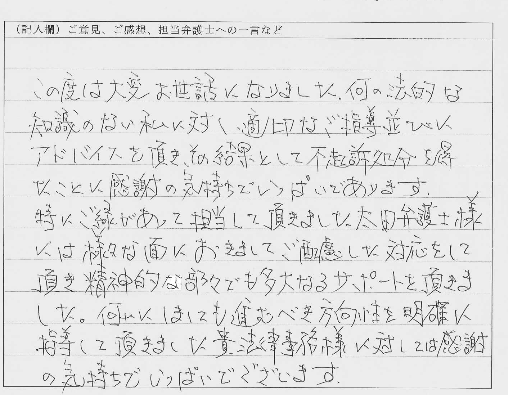 (記入欄)ご意見、ご感想、担当弁護士への一言など
この度は大変お世話になりました。何の法的な
知識のない私に対し、適切なご指導並びに
アドバイスを頂き、その結果として不起訴処分を得
たことに感謝の気持ちでいっぱいであります。
特にご縁があって担当して頂きました太田弁護士様
には様々な面におきましてご配慮した対応をして
頂き精神的な部分でも多大なるサポートを頂きま
した。何にしましても進むべき方向性を明確に
指導して頂きました貴法律事務様に対しては感謝
の気持ちでいっぱいでございます。